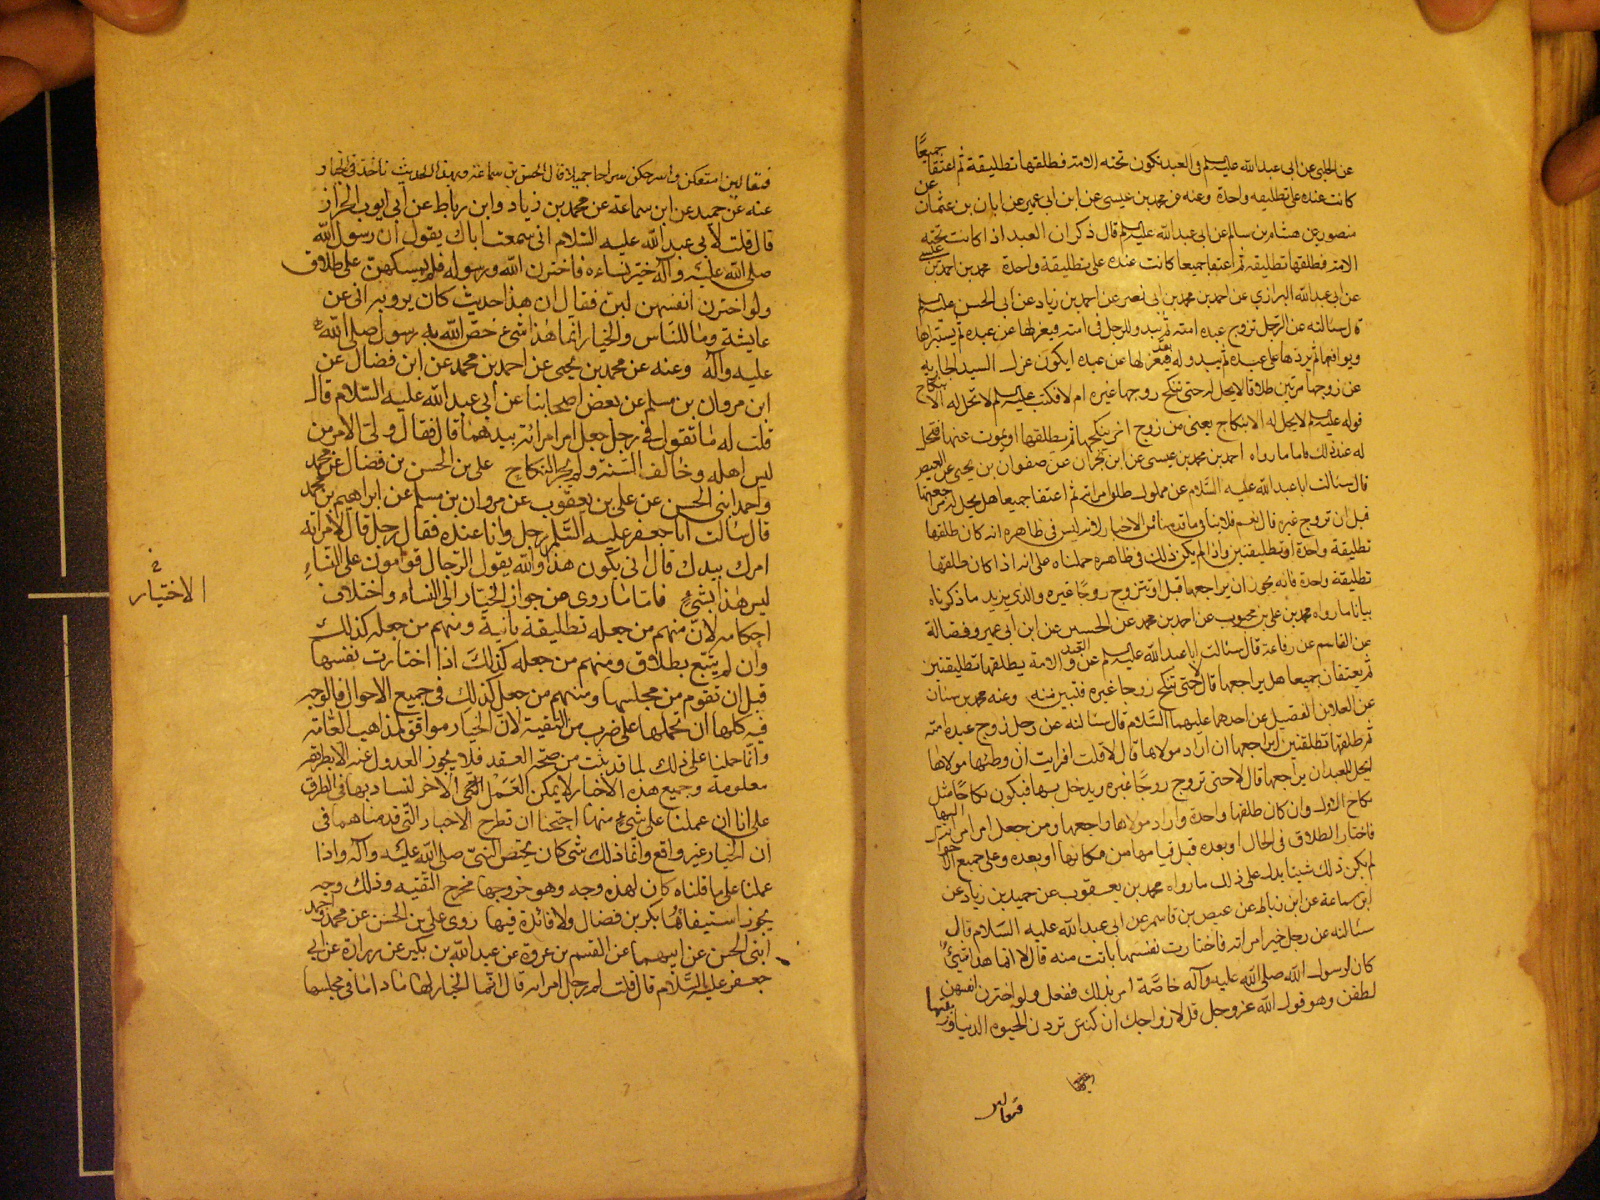 جميعًا
عن الحلبى عن ابى عبد الله عليه السلم فى العبد تكون تحته الامة فطلقها تطليقة ثم اعتقا
كانت عنده على تطليقه واحدة وعنه عن محمد بن عيسى عن ابن ابى عمير عن ابان بن عثمان عن
منصور عن هشام بن سالم عن ابى عبد الله عليه السلم قال ذكر ان العبد اذا كانت تحته
الامة فطلقها تطليقة ثم اعتقا جميعا كانت عنده على تطليقة واحدة محمد بن احمد بن
عن ابى عبد الله الرازي عن احمد بن محمد بن ابى نصر عن احمد بن زياد عن ابى الحسن عليه السلم
قال سئالته عن الرجل تزوج عبده امته ثم يبدو للرجل فى امته فيعزلها عن عبده ثم يستبرئها
ويواقعها ثم يردها على عبده ثم يبدو له بعد فيعزلها عن عبده ايكون عزل السيد الجارية
عن زوجها مرتين طلاقا لا يحل له حتى تنكح زوجا غيره ام لا فكتب عليه السلم لا تحل له الا بنكاح
قوله عليه السلم لا يحل له الا بنكاح يعنى من زوج اخر ينكحها ثم يطلقها او يموت عنها فتحل
له عند ذلك فاما ما رواه احمد بن محمد بن عيسى عن ابن ابى نجران عن صفوان بن يحيى عن العيص
قال سئالت ابا عبد الله عليه السّلام عن مملوك طلق امراته ثم اعتقا جميعا هل يحل له مراجعتها
قبل ان تزوج غيره قال نعم فلا ينافى ما قدمناه من الاخبار لانه ليس فى ظاهره انه كان طلقها
تطليقة واحدة او تطليقتين واذا لم يكن ذلك فى ظاهره حملناه على انه اذا كان طلقها
تطليقة واحدة فانه يجوز ان يراجعها قبل ان تتزوج زوجًا غيره والذى يزيد ما ذكرناه
بيانا ما رواه محمد بن على بن محبوب عن احمد بن محمد عن الحسين عن ابن ابى عمير وفضالة
عن القاسم عن رفاعة قال سئالت ابا عبد الله عليه السلم عن العبد والامة يطلقها تطليقتين
ثم يعتقان جميعا هل يراجعها قال لا حتى تنكح زوجا غيره فتبين منه وعنه محمد بن سنان
عن العلا بن الفضيل عن احدهما عليهما السّلام قال سئالته عن رجل زوج عبده امته
ثم طلقها تطليقتين ايراجعها ان اراد مولاها قال لا قلت افرايت ان وطئها مولاها
ايحل للعبد ان يراجعها قال لا حتى تزوج زوجًا غيره ويدخل بها فيكون نكاحًا مثل
نكاح الاول وان كان طلقها واحدة واراد مولاها راجعها ومن جعل امر امراته اليها
فاختار الطلاق فى الحال او بعده قبل قيامها من مكانها او بعده وعلى جميع الاحوال
لم يكن ذلك شيئا يدل على ذلك ما رواه محمد بن يعقوب عن حميد بن زياد عن
ابن سماعة عن ابن رباط عن عيص بن قاسم عن ابى عبد الله عليه السّلام قال
سئالته عن رجل خير امراته فاختارت نفسها بانت منه قال لا انما هذا شيئ
كان لرسول الله صلى الله عليه وآله خاصّة امر بذلك ففعل ولو اخترن انفسهن
لطلقن وهو قول الله عز وجل قل لازواجك ان كنتن تردن الحيوة الدنيا وزينتها
فتعالين
فتعالين امتعكن واسرحكن سراحا جميلا قال الحسن بن سماعة وبهذا الحديث ناخذ فى الخيار و
عنه عن حميد عن ابن سماعة عن محمد بن زياد وابن رباط عن ابى ايوب الخزاز
قال قلت لابى عبد الله عليه السّلام انى سمعت اباك يقول ان رسول الله
صلى الله عليه وآله خيّر نساءه فاخترن الله ورسوله فلم يمسكهن على طلاق
ولو اخترن انفسهن لبنّ فقال ان هذا حديث كان يرويه ابى عن
عايشة وما للنّاس والخيار انّما هذا شئ خصّ الله به رسوله صلى الله
عليه وآله وعنه عن محمد بن يحيى عن احمد بن محمد عن ابن فضال عن
ابن مروان بن مسلم عن بعض اصحابنا عن أبى عبد الله عليه السّلام قال
قلت له ما تقول فى رجل جعل امر امراته بيدها قال فقال ولّى الامر من
ليس اهله وخالف السّنّة ولم يجز النكاح على بن الحسن بن فضال عن محمد
واحمد ابنى الحسن عن على بن يعقوب عن مروان بن مسلم عن ابراهيم بن محمد
قال سالت ابا جعفر عليه السّلم رجل وانا عنده فقال رجل قال لامراته
امرك بيدك قال انى يكون هذا والله يقول الرّجال قوّامون على النّساءِ
ليس هذا بشئٍ فامّا ما روى من جواز الخيار الى النساء واختلاف
الاختيار
احكامه لانّ منهم من جعله تطليقة بائنة ومنهم من جعله كذلك
وان لم يتبع بطلاق ومنهم من جعله كذلك اذا اختارت نفسها
قبل ان تقوم من مجلسها ومنهم من جعل كذلك فى جميع الاحوال فالوجه
فيه كلها ان نحملها على ضرب من التقية لانّ الخيار موافق لمذاهب العامّة
وانّما حملنا على ذلك لما قد ثبت من صحّة العقد فلا يجوز العدول عنه الا بطريقة
معلومة وجميع هذه الاخبار لا يمكن العمل
على انا ان عملنا على شئٍ منها احتجنا ان نطرح الاخبار التى قدمناها فى
أن الخيار غير واقع وانّما ذلك شئ كان يختص النّبى صلى الله عليه وآله واذا
عملنا على ما قلناه كان لهذه وجه وهو خروجها مخرج التّقيه وذلك وجه
يجوز استيفاؤها بكر بن فضال ولا فائدة فيها روى على بن الحسن عن محمد واحمد
ابنى الحسن عن ابيهما عن القسم بن عروة عن عبد الله بن بكير عن زرارة عن ابى
جعفر عليه السّلام قال قلت له رجل امراته قال انّما الخيار لها ما داما فى مجلسها